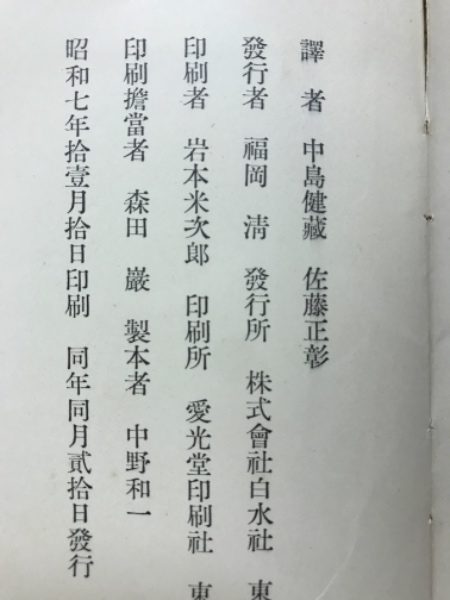 譯者 中島健藏 佐藤正彰
發行者 福岡清 發行所 株式會社白水社 東
印刷者 岩本米次郎 印刷所 愛光堂印刷社 東
印刷擔當者 森田巖 製本者 中野和一
昭和七年拾壹月拾日印刷 同年同月貳拾日發行